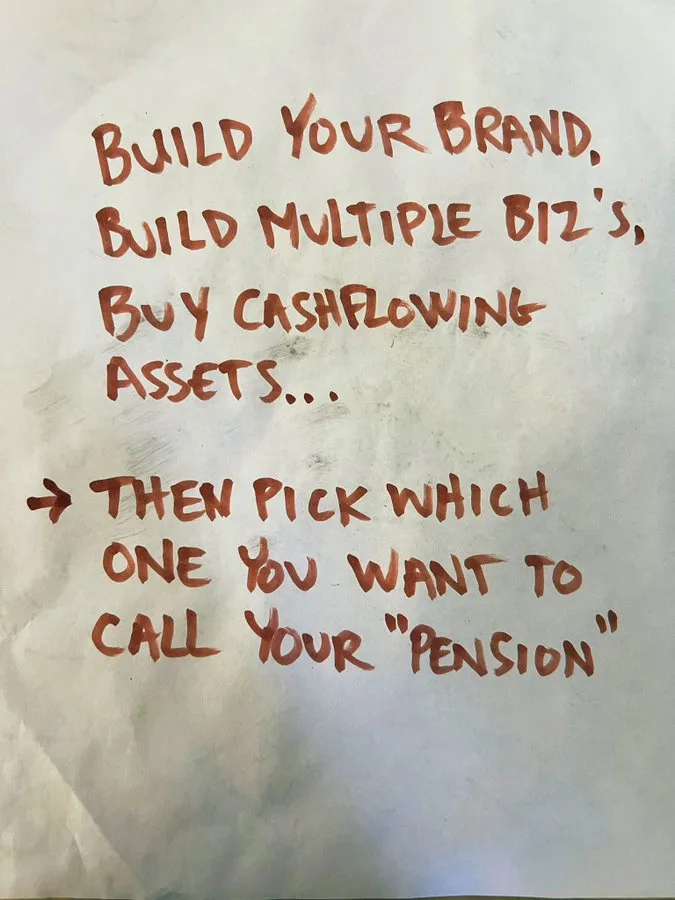 BUILD YOUR BRAND,
BUILD MULTIPLE BIZ's,
BUY CASHFLOWING
ASSETS...
→ THEN PICK WHICH
ONE YOU WANT TO
CALL YOUR "PENSION"